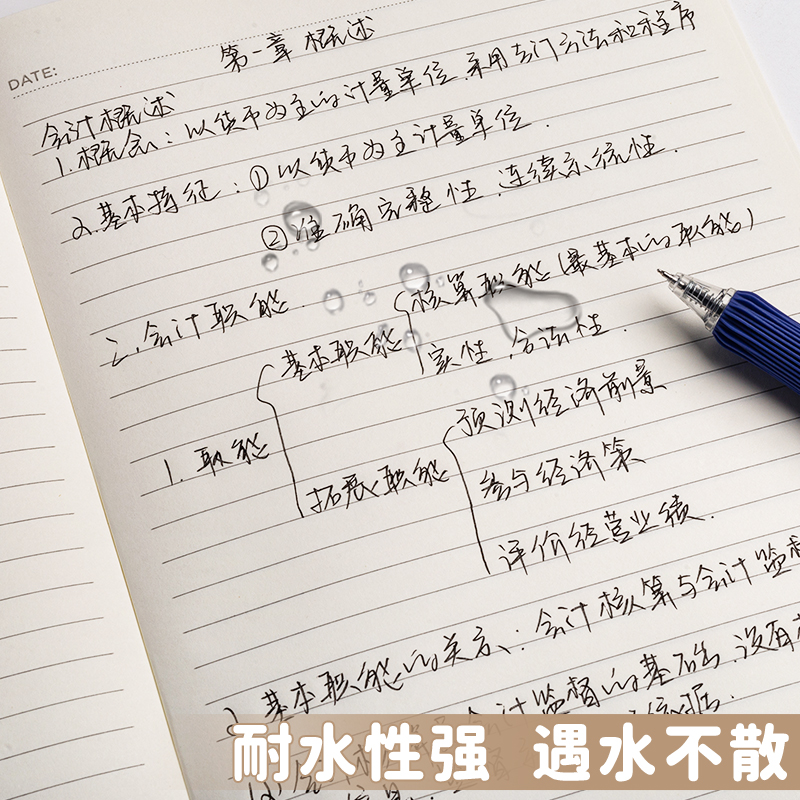 DATE:
第一章 概述
会计概述
1.概念：以货币为主的计量单位.采用专门方法和程序
2.基本特征：①以货币为主计量单位.
②准确完整性.连续系统性.
二.会计职能.
基本职能 核算职能(最基本的职能)
实性.合法性.
1.职能
预测经济前景
拓展职能 参与经济策
评价经营业绩.
基本职能的关系：会计核算与会计监督
会计监督的基础.没有
耐水性强 遇水不散